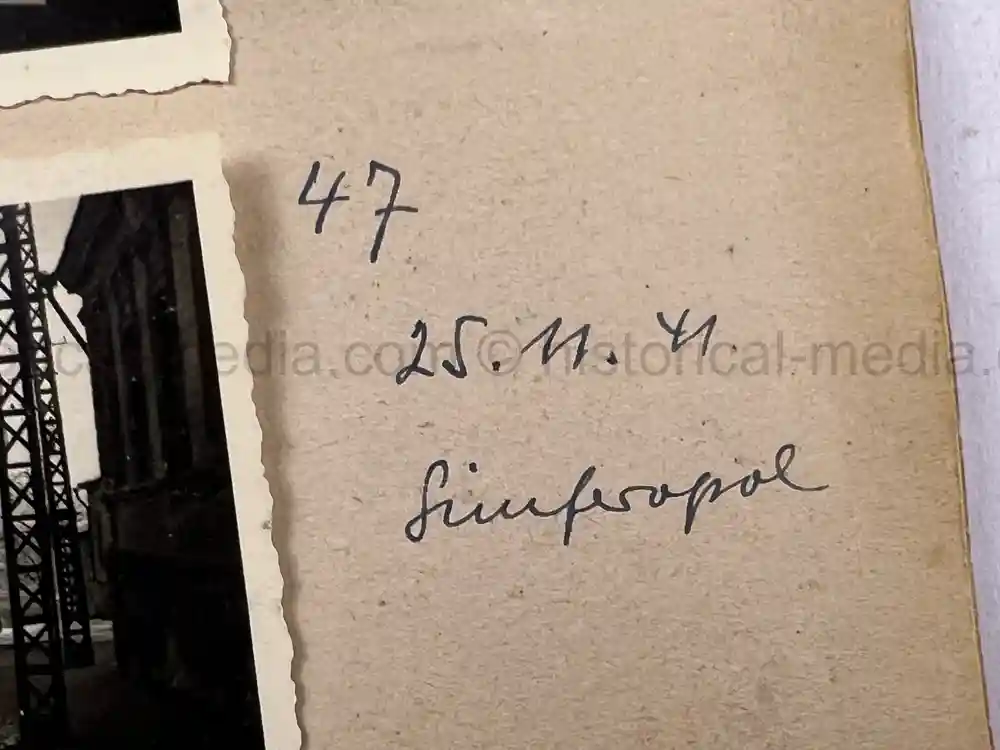 47
25. 11. 41.
Simferopol
historical-media.com © historical-media.